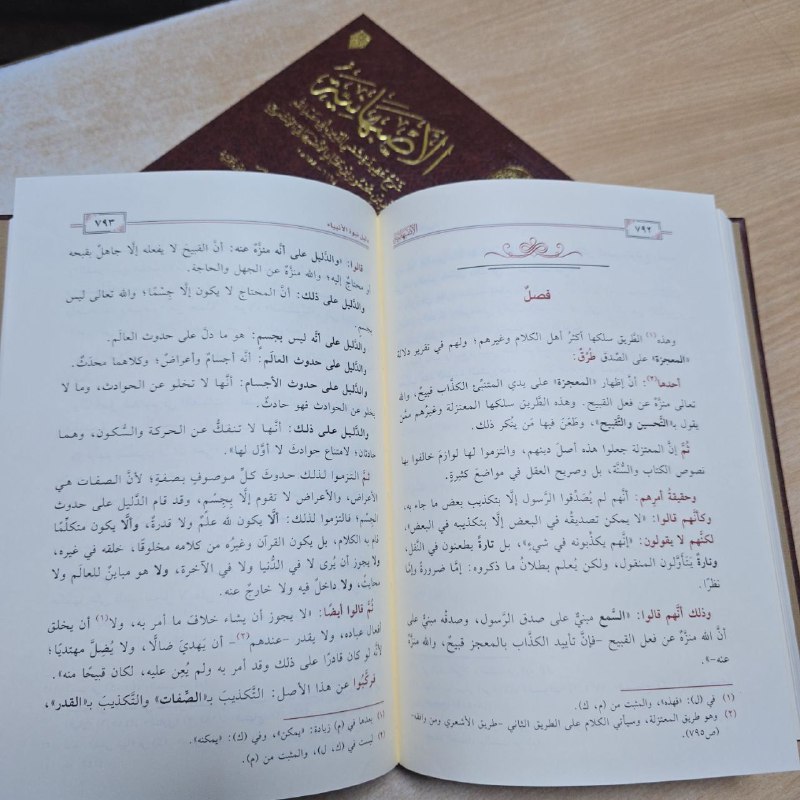 الأصبهانية
٧٩٢
الأصبهانية
فصلٌ
وهذه(١) الطَّريق سلكها أكثرُ أهل الكلام وغيرهم؛ ولهم في تقرير دلالة
«المعجزة» على الصّدق طُرُقٌ:
أحدها(٢): أنَّ إظهار «المعجزة» على يدي المتنبّئ الكذَّاب قبيحٌ، والله
تعالى منزَّهٌ عن فعل القبيح. وهذه الطَّريق سلكها المعتزلة وغيرُهم ممَّن
يقول بـ«التَّحسين والتَّقبيح»، وطَعَنَ فيها مَن يُنكر ذلك.
ثُمَّ إنَّ المعتزلة جعلوا هذه أصلَ دينهم، والتزموا لها لوازمَ خالفوا بها
نصوص الكتاب والسُّنَّة، بل وصريح العقل في مواضعَ كثيرةٍ.
وحقيقةُ أمرِهم: أنَّهم لم يُصَدِّقوا الرَّسول إلَّا بتكذيب بعض ما جاء به،
وكأنَّهم قالوا: «لا يمكن تصديقُه في البعض إلَّا بتكذيبه في البعض»،
لكنَّهم لا يقولون: «إنَّهم يكذِّبونه في شيءٍ»، بل تارةً يطعنون في النَّقل،
وتارةً يَتأوَّلون المنقول، ولكن يُعلم بطلانُ ما ذكروه: إمَّا ضرورةً وإمَّا
نظرًا.
وذلك أنَّهم قالوا: «السَّمع مبنيٌّ على صدق الرَّسول، وصدقُه مبنيٌّ على
أنَّ الله منزَّهٌ عن فعل القبيح –فإنَّ تأييد الكذَّاب بالمعجز قبيحٌ، والله منزَّهٌ
عنه–».
(١) في (ل): «فهذه»، والمثبت من (م، ك).
(٢) وهو طريق المعتزلة، وسيأتي الكلام على الطريق الثاني –طريق الأشعري ومن وافقه–
(ص٧٩٥).
دلائل نبوة الأنبياء
٧٩٣
قالوا: «والدَّليل على أنَّه منزَّهٌ عنه: أنَّ القبيح لا يفعله إلَّا جاهلٌ بقبحه
أو محتاجٌ إليه؛ والله منزَّهٌ عن الجهل والحاجة.
والدَّليل على ذلك: أنَّ المحتاج لا يكون إلَّا جِسْمًا؛ والله تعالى ليس
بجسم.
والدَّليل على أنَّه ليس بجسمٍ: هو ما دلَّ على حدوث العالَم.
والدَّليل على حدوث العالَم: أنَّه أجسامٌ وأعراضٌ؛ وكلاهما محدَثٌ.
والدَّليل على حدوث الأجسام: أنَّها لا تخلو عن الحوادث، وما لا
يخلو عن الحوادث فهو حادثٌ.
والدَّليل على ذلك: أنَّها لا تنفكُّ عن الحركة والسُّكون، وهما
حادثان؛ لامتناع حوادث لا أوَّل لها».
ثُمَّ التزموا لذلك حدوثَ كلِّ موصوفٍ بصفةٍ؛ لأنَّ الصفات هي
الأعراض، والأعراض لا تقوم إلَّا بجِسْمٍ، وقد قام الدَّليل على حدوث
الجسْم؛ فالتزموا لذلك: ألَّا يكون لله علمٌ ولا قدرةٌ، وألَّا يكون متكلِّمًا
قام به الكلام، بل يكون القرآن وغيرُه من كلامه مخلوقًا، خلقه في غيره،
ولا يجوز أن يُرى لا في الدُّنيا ولا في الآخرة، ولا هو مباينٌ للعالم ولا
محايثٌ، ولا داخلٌ فيه ولا خارجٌ عنه.
ثُمَّ قالوا أيضًا: «لا يجوز أن يشاء خلافَ ما أمر به، ولا(١) أن يخلق
أفعال عباده، ولا يقدر –عندهم(٢)– أن يَهديَ ضالًّا، ولا يُضِلَّ مهتديًا؛
لأنَّه لو كان قادرًا على ذلك وقد أمر به ولم يُعِن عليه، لكان قبيحًا منه».
فركَّبُوا عن هذا الأصل: التَّكذيبَ بـ«الصِّفات» والتَّكذيبَ بـ«القدر»،
(١) بعدها في (م) زيادة: «يمكن»، وفي (ك): «يمكنه».
(٢) ليست في (ك، ل)، والمثبت من (م).